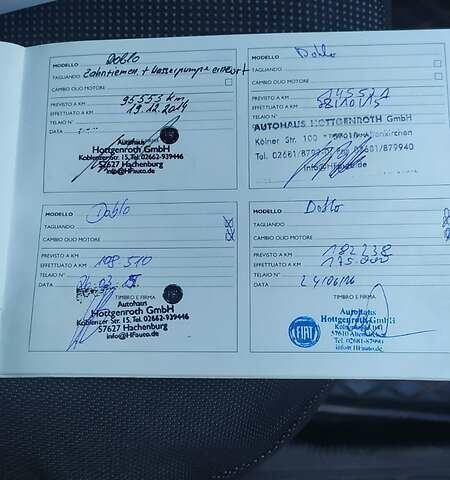 MODELLO Doblo
TAGLIANDO Zahnriemen + Wasserpumpe
CAMBIO OLIO MOTORE
PREVISTO A KM 95555 km
EFFETTUATO A KM 19.12.2014
TELAIO N°
DATA
Autohaus
Hottgenroth GmbH
Koblenzer Str. 15, Tel. 02662-939446
57627 Hachenburg
info@HFauto.de
MODELLO Doblo
TAGLIANDO
CAMBIO OLIO MOTORE
PREVISTO A KM
EFFETTUATO A KM
AUTOHAUS HOTTGENROTH GmbH
TELAIO N°
Kölner Str. 100
DATA
Tel. 02681/879940
info@HFauto.de
MODELLO Doblo
TAGLIANDO
CAMBIO OLIO MOTORE
PREVISTO A KM
EFFETTUATO A KM 108 510
TELAIO N°
DATA
TIMBRO E FIRMA
Autohaus
Hottgenroth GmbH
Koblenzer Str. 15, Tel. 02662-939446
57627 Hachenburg
info@HFauto.de
MODELLO Doblo
TAGLIANDO
CAMBIO OLIO MOTORE
PREVISTO A KM
EFFETTUATO A KM 175000
TELAIO N°
DATA 24/06/16
TIMBRO E FIRMA
FIAT
Autohaus
Hottgenroth GmbH
Tel. 02681-87990
info@HFauto.de